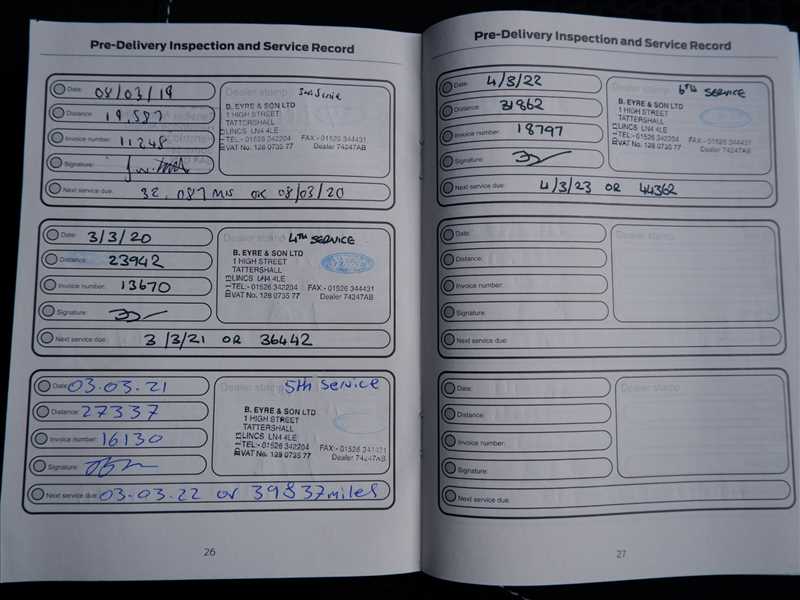 Pre-Delivery Inspection and Service Record
Date: 08/03/19
Dealer stamp
Distance: 19,587
B. EYRE & SON LTD
1 HIGH STREET
TATTERSHALL
LINCS LN4 4LE
TEL:- 01526 342204 FAX - 01526 344431
VAT No. 128 0735 77 Dealer 74247AB
Invoice number: 11248
Signature:
Next service due: 32,087 MLS OR 08/03/20
Date: 3/3/20
Dealer stamp 4TH SERVICE
Distance: 23942
B. EYRE & SON LTD
1 HIGH STREET
TATTERSHALL
LINCS LN4 4LE
TEL:- 01526 342204 FAX - 01526 344431
VAT No. 128 0735 77 Dealer 74247AB
Invoice number: 13670
Signature:
Next service due: 3/3/21 OR 36442
Date: 03.03.21
Dealer stamp 5th Service
Distance: 27337
B. EYRE & SON LTD
1 HIGH STREET
TATTERSHALL
LINCS LN4 4LE
TEL:- 01526 342204 FAX - 01526 344431
VAT No. 128 0735 77 Dealer 74247AB
Invoice number: 16130
Signature:
Next service due: 03.03.22 or 39837miles
26
Pre-Delivery Inspection and Service Record
Date: 4/3/22
Dealer stamp 6TH SERVICE
Distance: 31862
B. EYRE & SON LTD
1 HIGH STREET
TATTERSHALL
LINCS LN4 4LE
TEL:- 01526 342204 FAX - 01526 344431
VAT No. 128 0735 77 Dealer 74247AB
Invoice number: 18797
Signature:
Next service due: 4/3/23 OR 44362
Date:
Dealer stamp
Distance:
Invoice number:
Signature:
Next service due:
Date:
Dealer stamp
Distance:
Invoice number:
Signature:
Next service due:
27